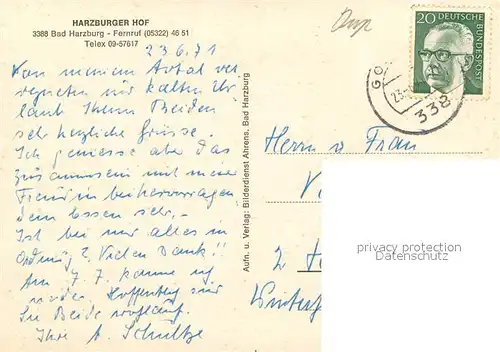 HARZBURGER HOF
3388 Bad Harzburg - Fernruf (05322) 46 51
Telex 09-57617
23.6.71
Von meinem total ver
regneten und kalten Ur
laub Ihnen Beiden
sehr herzliche Grüsse.
Ich geniesse aber das
zusammensein mit meiner
Freundin bei hervorragen
dem Essen sehr.-
Ist bei mir alles in
Ordnung? Vielen Dank!!
Am 7.7. komme ich
wieder. Hoffentlich sind
Sie Beide wohlauf.
Ihre Schultze
Aufn. u. Verlag: Bilderdienst Ahrens, Bad Harzburg
20 DEUTSCHE
BUNDESPOST
GO
23.
338
Herrn u Frau
2
privacy protection
Datenschutz